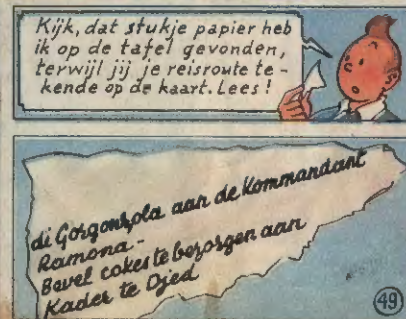 Kijk, dat stukje papier heb
ik op de tafel gevonden,
terwijl jij je reisroute te-
kende op de kaart. Lees!
di Gorgonzola aan de Kommandant
Ramona-
Bevel cokes te bezorgen aan
Kader te Djed
49